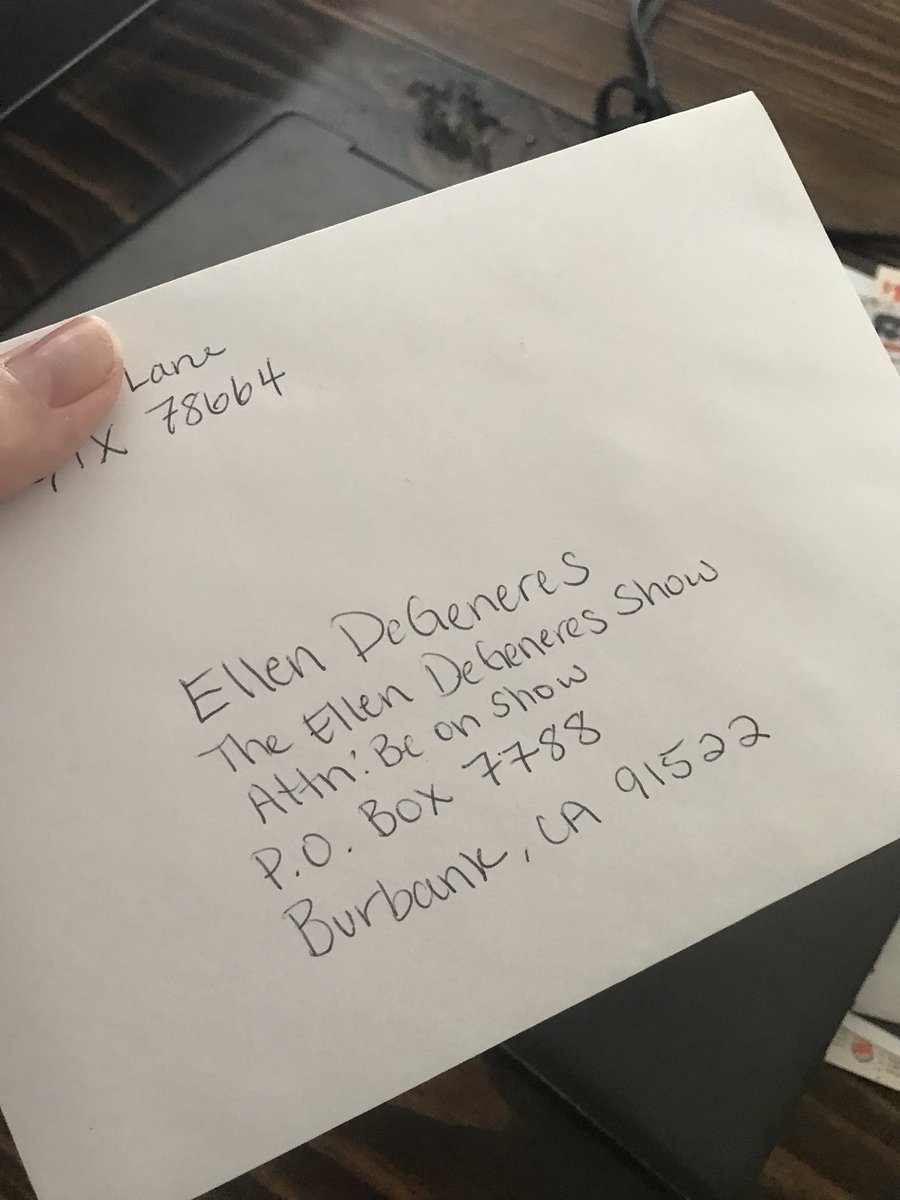 Lane
TX 78664
Ellen DeGeneres
The Ellen DeGeneres Show
Attn: Be on Show
P.O. Box 7788
Burbank, CA 91522